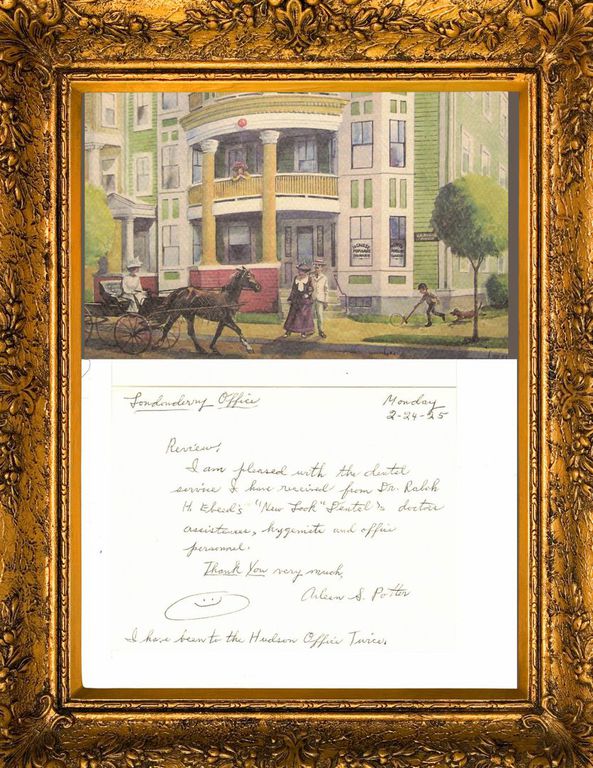 Londonderry Office
Monday
2-24-25
Review,
I am pleased with the dental
service I have received from Dr. Ralph
H. Ebeed's "New Look" Dental's doctors
assistances, hygenists and office
personnel.
Thank You very much,
Aileen S. Potter
I have been to the Hudson Office Twice.